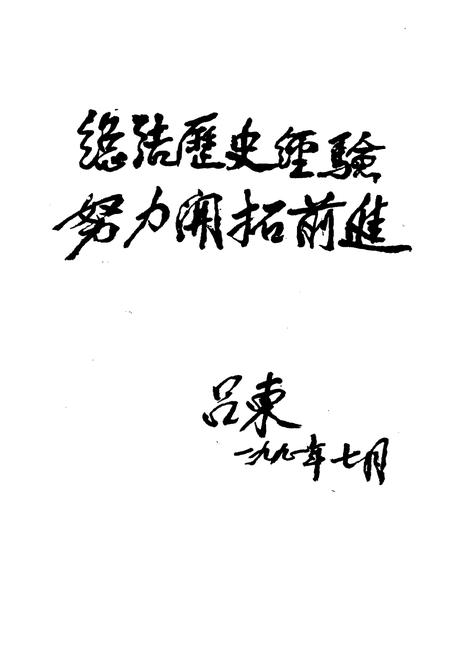 總結歷史經驗
努力開拓前進
呂東
一九九一年七月